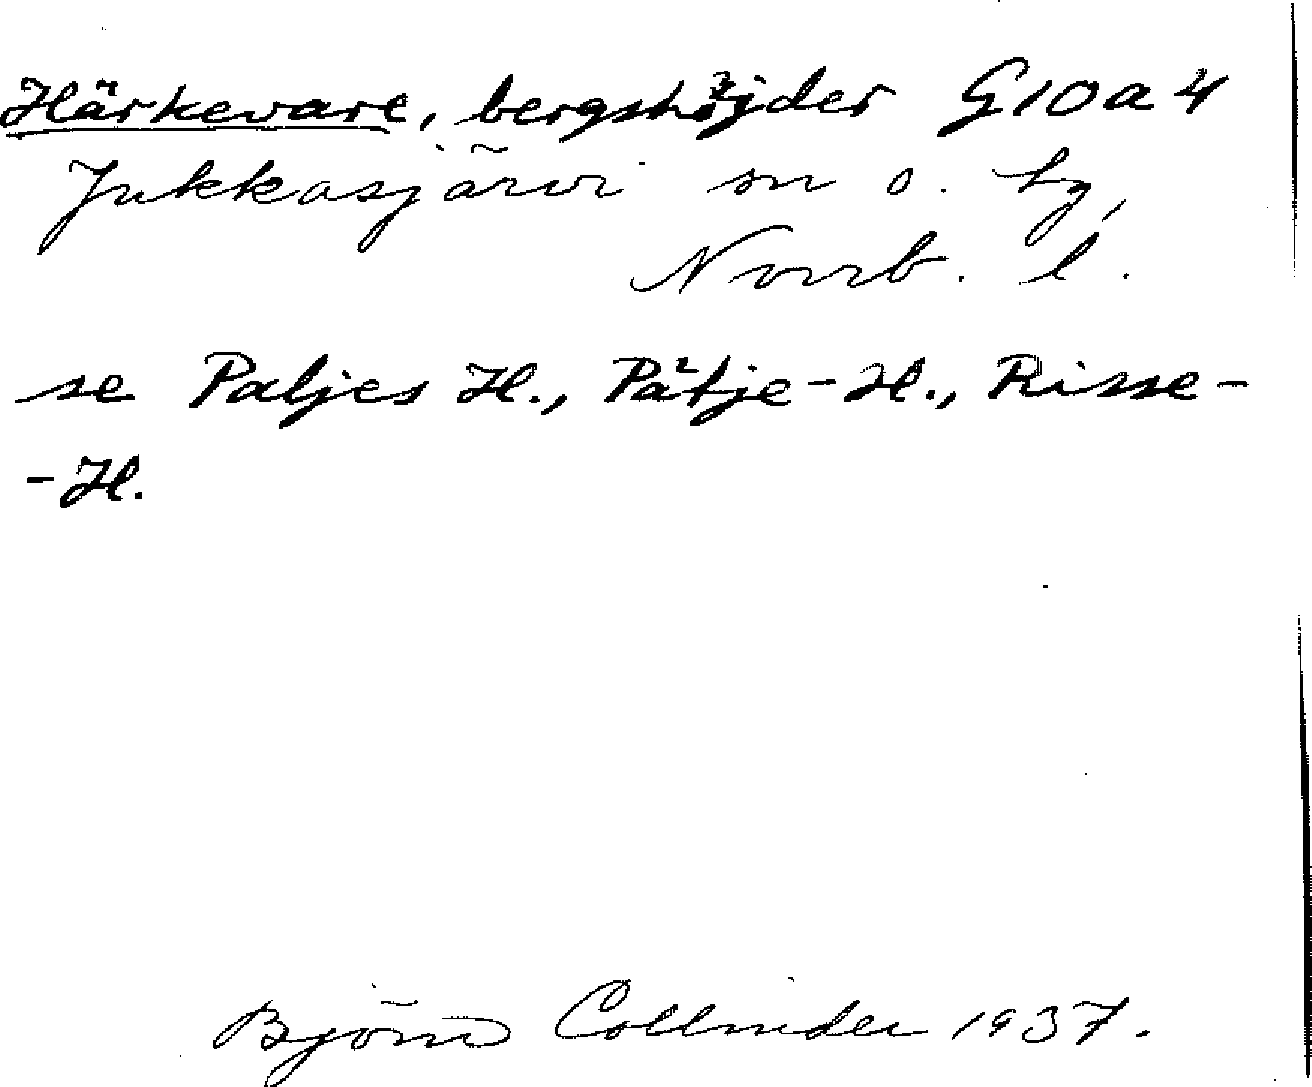 Härkevare, bergshöjder G10a4
Jukkasjärvi sn o. hg,
Norrb. l.
se Paljes H., Påtje-H., Risse-
-H.
Björn Collinder 1937.